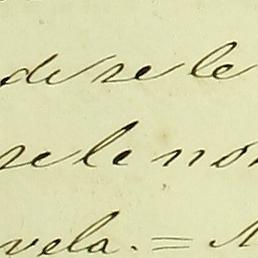 de se le
se le no
vela. = A